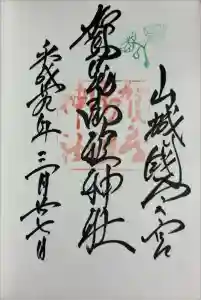 山城國一之宮
賀茂御祖神社
平成廿九年三月廿七日